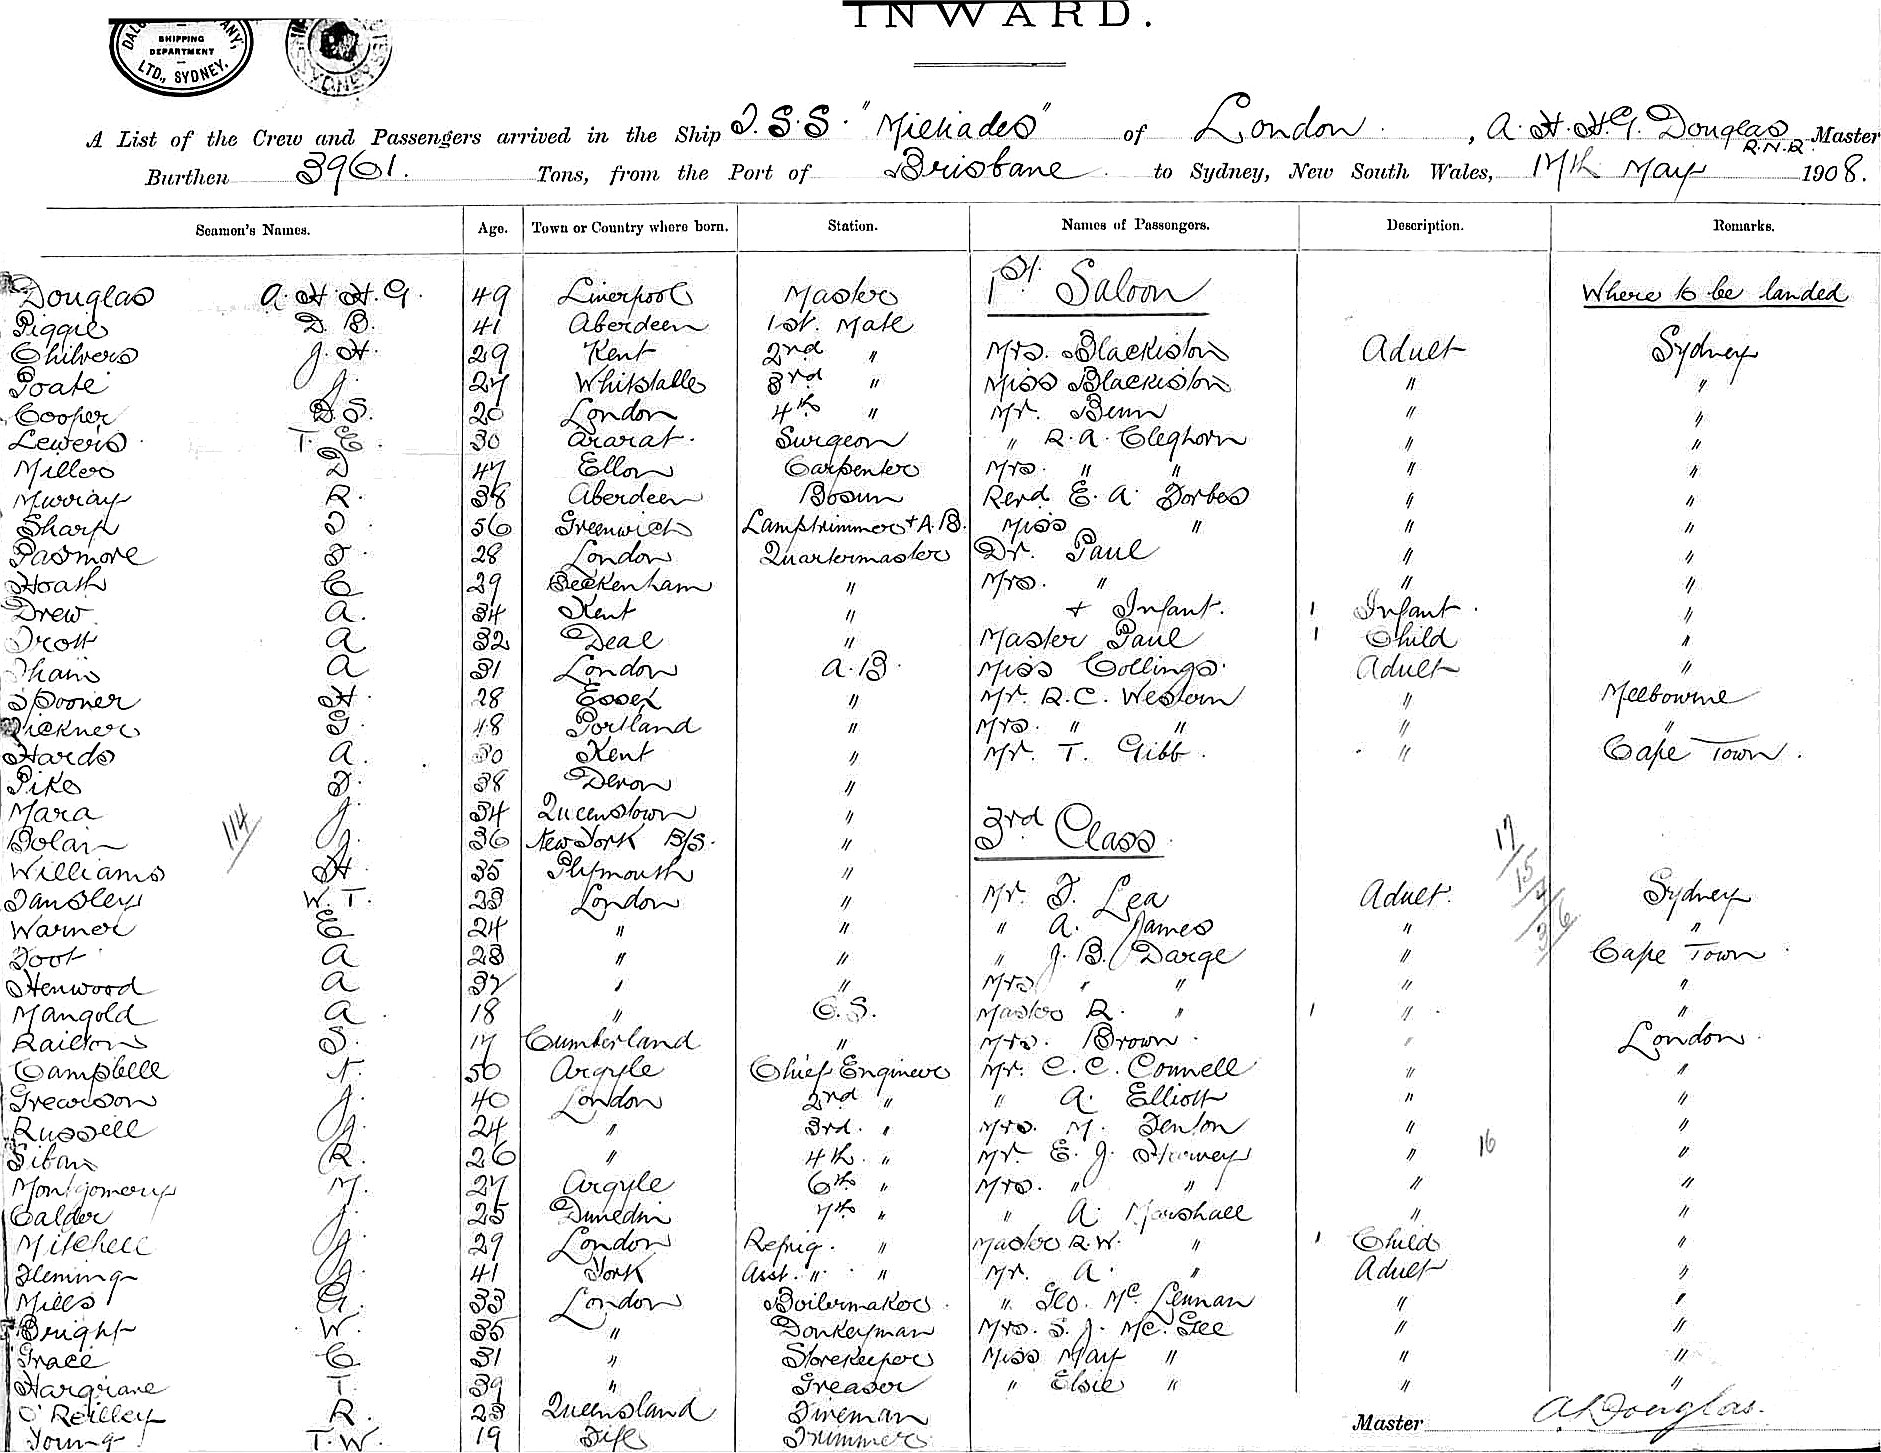 INWARD.
SHIPPING
DEPARTMENT
LTD., SYDNEY.
A List of the Crew and Passengers arrived in the Ship T.S.S. "Miltiades" of London, A. H. H. G. Douglas R.N.R. Master
Burthen 3961. Tons, from the Port of Brisbane to Sydney, New South Wales, 17th May 1908.
Seamen's Names. Age. Town or Country where born. Station. Names of Passengers. Description. Remarks.
Douglas A. H. H. G. 49 Liverpool Master 1st. Saloon Where to be landed
Piggie D. B. 41 Aberdeen 1st. Mate
Chilvers J. H. 29 Kent 2nd " Mrs. Blackiston Adult Sydney
Poate J. 27 Whitstable 3rd " Miss Blackiston " "
Cooper D. S. 20 London 4th " Mr. Benn " "
Lewers T. E. 30 Ararat. Surgeon " R. A. Cleghorn " "
Miller D 47 Ellon Carpenter Mrs. " " " "
Murray R. 38 Aberdeen Bosun Revd E. A. Forbes " "
Sharp 56 Greenwich Lamptrimmer + A.B. Miss " " "
Pasmore 28 London Quartermaster Dr. Paul " "
Hoath C 29 Beckenham " Mrs. " " "
Drew A. 34 Kent " + Infant. 1 Infant. "
Trott A 32 Deal " Master Paul 1 Child "
A 31 London A.B. Miss Collings. Adult "
Spooner H. 28 Essex " Mr. R. C. Western " Melbourne
G. 48 Portland " Mrs. " " " "
Hards A. 30 Kent " Mr. T. Gibb. " Cape Town.
Pike 38 Devon "
Mara J. 34 Queenstown "
114
Bolan J. 36 New York B/S. " 3rd Class.
Williams H. 35 Plymouth "
17
15
Tansley W. T. 23 London " Mr. F. Lea Adult. Sydney
Warner E 24 " " " A. James " "
Foot A 23 " " " J. B. Darge " Cape Town
Henwood A 37 " " Mrs " " " "
Mangold A 18 " O.S. Master R. " 1 " "
Railton S. 17 Cumberland " Mrs. Brown. " London.
Campbell 50 Argyle Chief Engineer Mr. C. C. Connell " "
Grewson J. 40 London 2nd " " A. Elliott " "
Russell J. 24 " 3rd. " Mrs. M. Fenton " "
R. 26 " 4th. " Mr. E. J. Harvey " 16 "
Montgomery M. 27 Argyle 6th " Mrs. " " " "
Calder J. 25 Dunedin 7th " " A. Marshall " "
Mitchell J. 29 London Refrig. " Master R. W. " 1 Child "
Fleming J. 41 York Asst. " " Mr. A. " Adult "
Mills G. 33 London Boilermaker. " Geo. McLennan " "
Bright W. 35 " Donkeyman Mrs. S. J. McGee " "
Grace C 31 " Storekeeper Miss May " " "
Hargrave T. 39 " Greaser " Elsie " " "
O'Reilley R. 23 Queensland Fireman
Master A. Douglas.
Young T. W. 19 Fife Trimmer